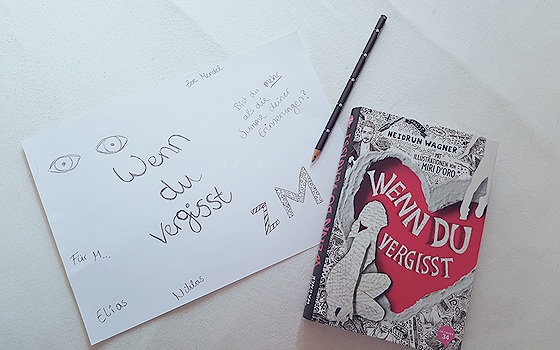 Zoe Mendel
Bist du mehr
als die
Summe deiner
Erinnerungen?
Wenn
du
vergisst
1M
Für M...
Elias
Niklas
HEIDRUN WAGNER
MIT
ILLUSTRATIONEN VON
MIRI D'ORO
WENN DU
VERGISST
WENN DU VERGISST
WAGNER
34